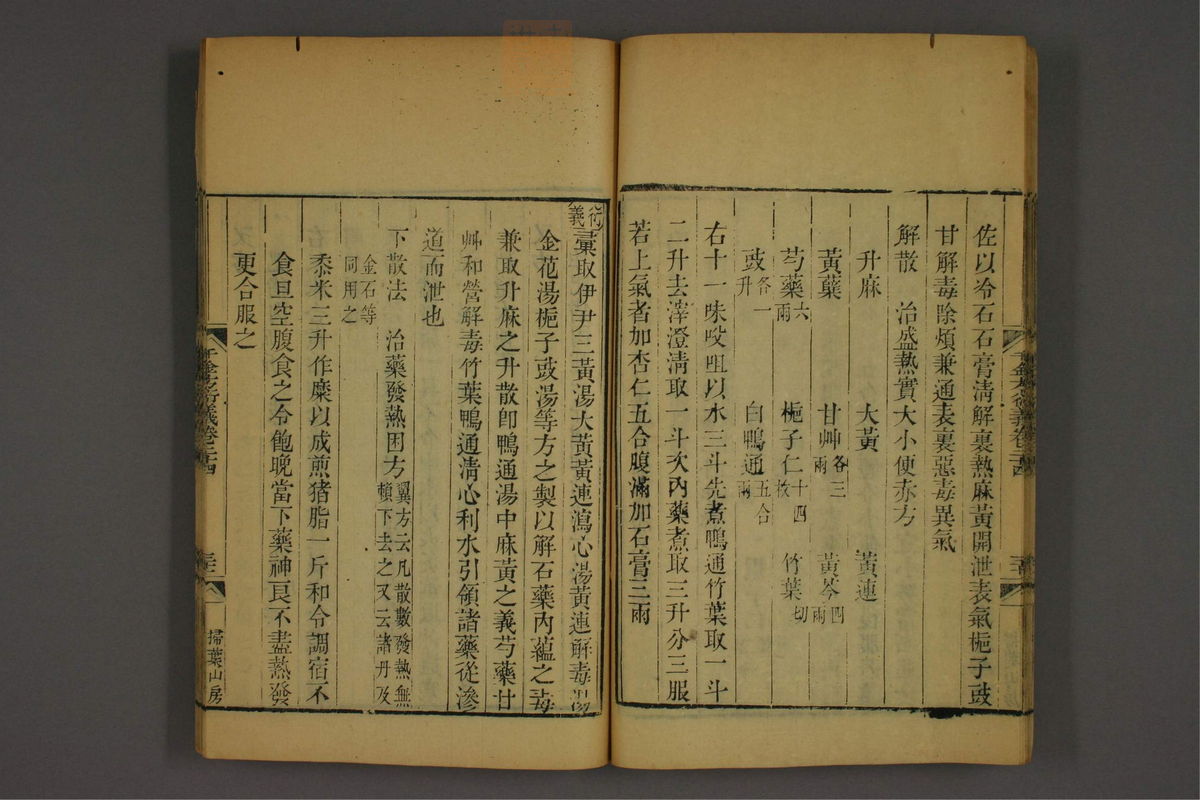 佐以冷石石膏淸解裏熱麻黃開泄表氣梔子豉
甘解毒除煩兼通表裏惡毒異氣
解散　治盛熱實大小便赤方
升麻　大黃　黃連
黃蘗　甘艸各三兩　黃芩四兩
芍藥六兩　梔子仁十四枚　竹葉切
豉各一升　白鴨通五合兩
右十一味㕮咀以水三斗先煮鴨通竹葉取一斗
二升去滓澄淸取一斗次內藥煮取三升分三服
若上氣者加杏仁五合腹滿加石膏三兩
千金方衍義卷二十四
衍義彙取伊尹三黃湯大黃黃連瀉心湯黃連解毒湯
金花湯梔子豉湯等方之製以解石藥內蘊之毒
兼取升麻之升散卽鴨通湯中麻黃之義芍藥甘
艸和營解毒竹葉鴨通淸心利水引領諸藥從滲
道而泄也
下散法　治藥發熱困方翼方云凡散數發熱無賴下去之又云諸丹及
金石等同用之
黍米三升作糜以成煎猪脂一斤和令調宿不
食旦空腹食之令飽晚當下藥神良不盡熱發
更合服之
千金方衍義卷二十四
掃葉山房